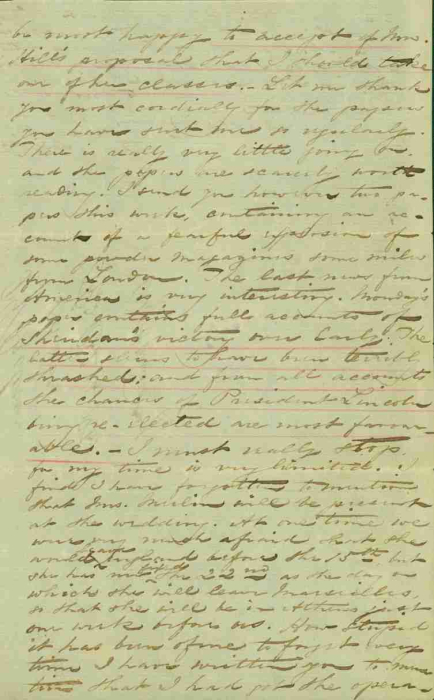 be most happy to accept of Mrs.
Hill's proposal that I should take
one of her classes. - Let me thank
you most cordially for the papers
you have sent me so regularly.
There is really very little going on
and the papers are scarcely worth
reading. I send you however two pa-
pers this week, containing an ac-
count of a fearful explosion of
some powder magazines some miles
from London. The last news from
America is very interesting. Monday's
paper contains full accounts of
Sheridan's victory over Early. The
latter seems to have been terribly
thrashed; and from all accounts
the chances of President Lincoln
being re-elected are most favour-
able. - I must really stop,
for my time is very limited. I
find I have forgotten to mention
that Mrs. will be present
at the wedding. At one time we
were very much afraid that she
would leave England before the 15th, but
she has the 22nd as the day on
which she will leave Marseilles,
so that she will be in Athens just
one week before us. How stupid
it has been of me to forget every
time I have written you to men-
tion that I had got the opera-